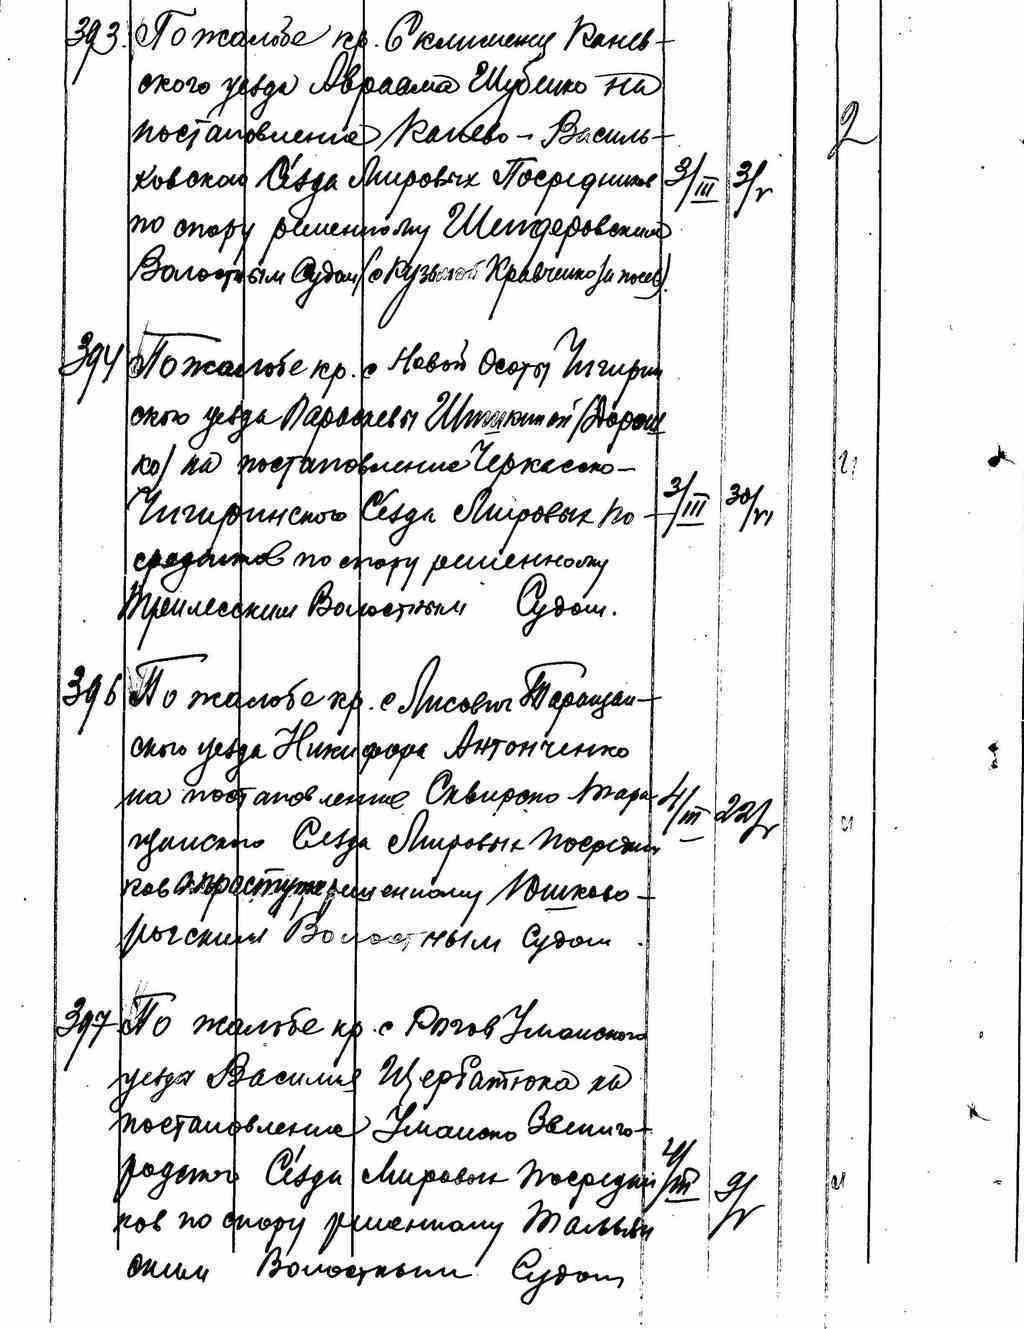 393. По жалобе кр. С Клименец Канев-
ского уезда Авраама Шубенко на
постановление Канево-Василь-
ковского Сезда Мировых Посредников 3/III 3/V
по спору решенному Шендеровским
Волостным Судом (с Кузьмой Кравченко /и посев).
2
394 По жалобе кр. с Новой Осоты Чигирин
ского уезда Парасковы
ко) на постановление Черкасско-
Чигиринского Сезда Мировых по- 3/III 30/VI
средников по спору решенному
Трилесским Волостным Судом.
396 По жалобе кр. с Лисович Таращан-
ского уезда Никифора Антонченко
на постановление Сквирско Тара 4/III 22/V
щанского Сезда Мировых Посредни
ков решенному Юшково-
рогским Волостным Судом.
397 По жалобе кр. с Рогов Уманского
уезда Василия Щербатюка на
постановление Уманско Звениго-
родского Сезда Мировых Посредни 4/III 9/V
ков по спору решенному Тальян
ским Волостным Судом